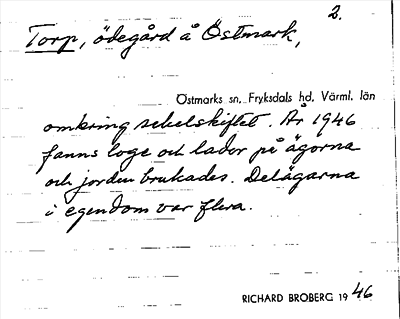 2.
Torp, ödegård å Östmark,
Östmarks sn, Fryksdals hd, Värml. län
omkring sekelskiftet. År 1946
fanns loge och lador på ägorna
och jorden brukades. Delägarna
i egendom var flera.
RICHARD BROBERG 1946